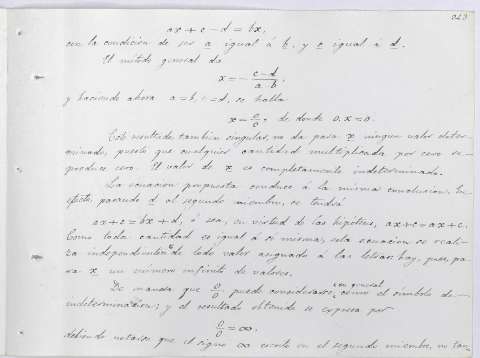 043
ax + c - d = bx,
con la condición de ser a igual á b, y c igual á d.
El método general da
x = - c-d / a-b,
y haciendo ahora a=b, c=d, se halla
x = 0/0, de donde 0.x = 0.
Este resultado tambien singular, no da para x ningun valor deter-
minado, puesto que cualquier cantidad multiplicada por cero se-
produce cero. El valor de x es completamente indeterminado.
La ecuacion propuesta conduce á la misma conclusion. En
efecto, pasando d al segundo miembro, se tendrá
ax + c = bx + d, ó sea, en virtud de las hipótesis, ax + c = ax + c.
Como toda cantidad es igual á si misma, esta ecuacion se reali-
za independientemente de todo valor asignado á las letras; hay, pues, pa-
ra x un número infinito de valores.
De manera que 0/0 puede considerarse en general como el símbolo de —
indeterminacion; y el resultado obtenido se expresa por
0/0 = ∞,
debiendo notarse que el signo ∞ escrito en el segundo miembro, no tan-